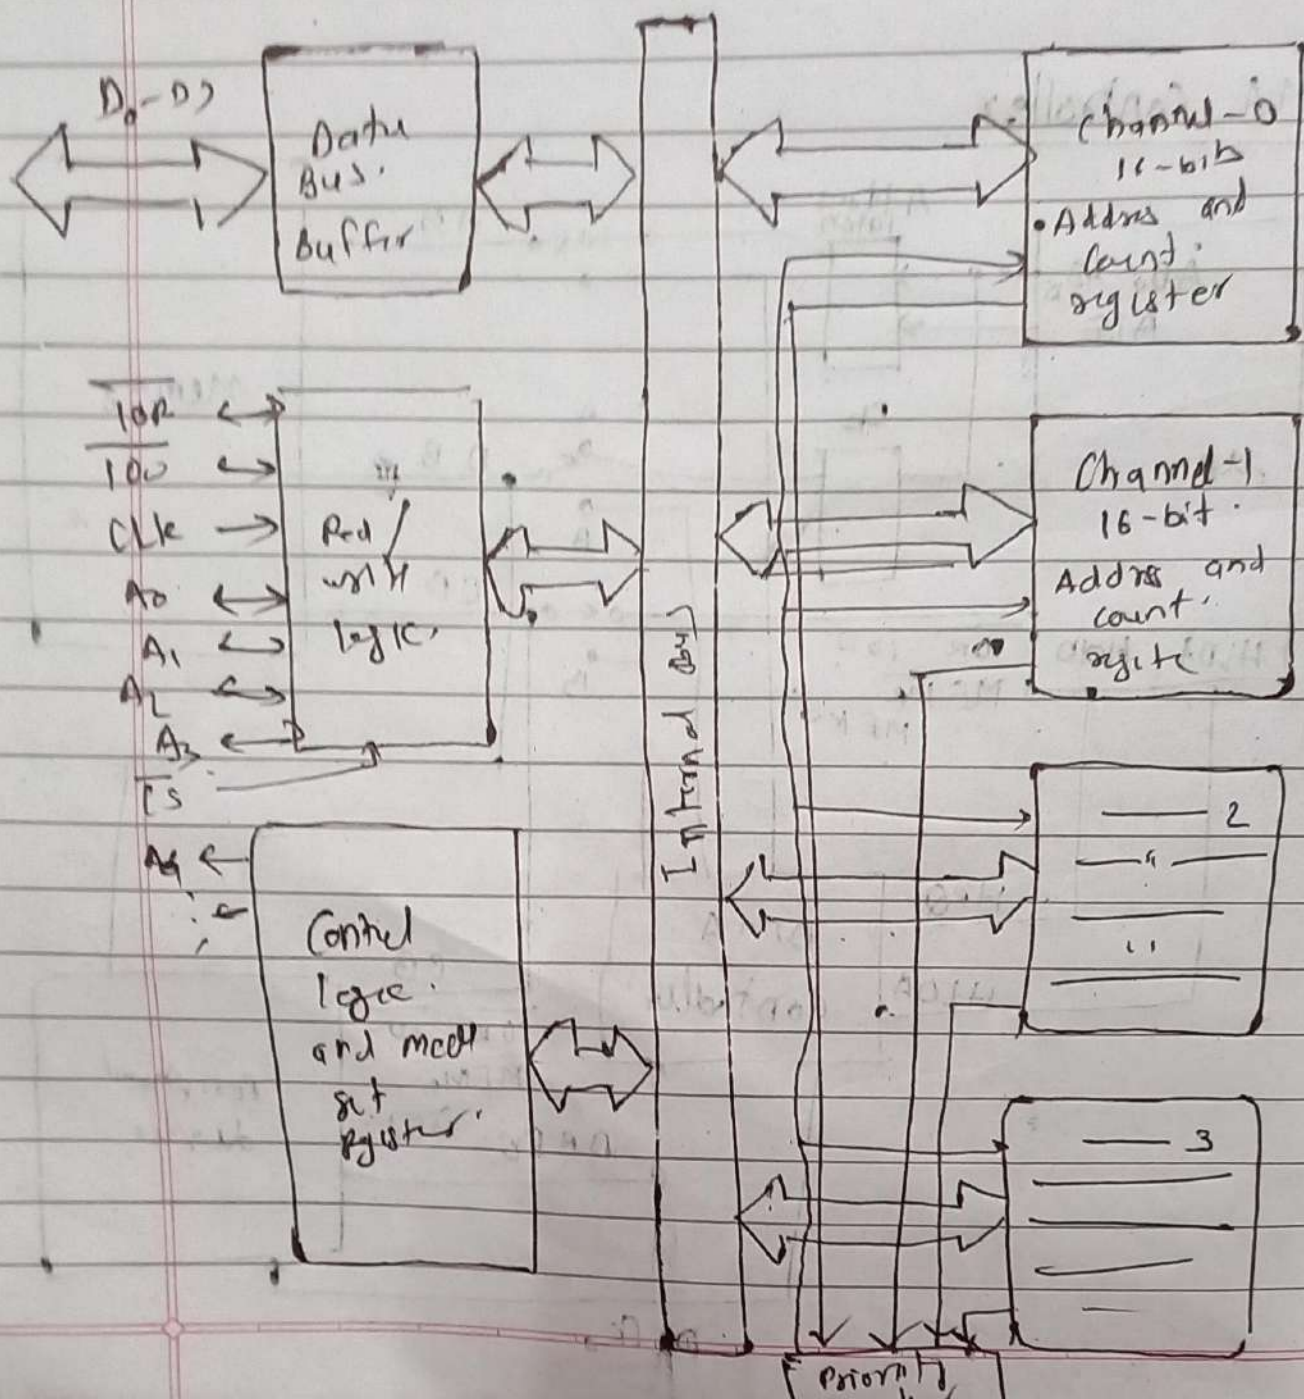 D0-D7
Data
Bus.
Buffer
IOR
IOW
CLK
A0
A1
A2
A3
CS
Red/
writ
logic.
A4
Control
logic.
and mode
set
Rgister.
Internal Bus
Channel-0
16-bits
• Addres and
Count.
register
Channel-1
16-bit.
Address and
count.
2
"
"
3
Priority